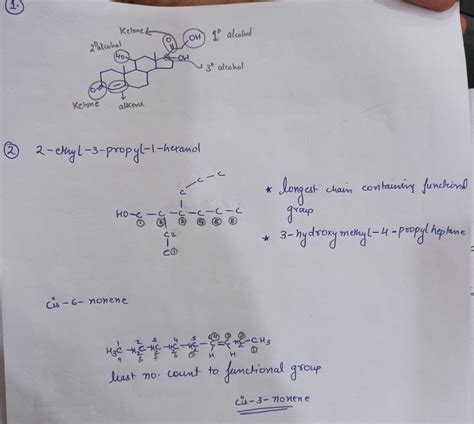 1.
Ketone
O
OH
1° alcohol
2° alcohol
HO
OH
3° alcohol
O
Ketone
alkene
2
2-ethyl-3-propyl-1-hexanol
C-C-C
HO-C-C-C-C-C-C
1 2 3 4 5 6
C2
C1
* longest chain containing functional group
* 3-hydroxymethyl-4-propyl heptane
cis-6-nonene
least no. count to functional group
cis-3-nonene